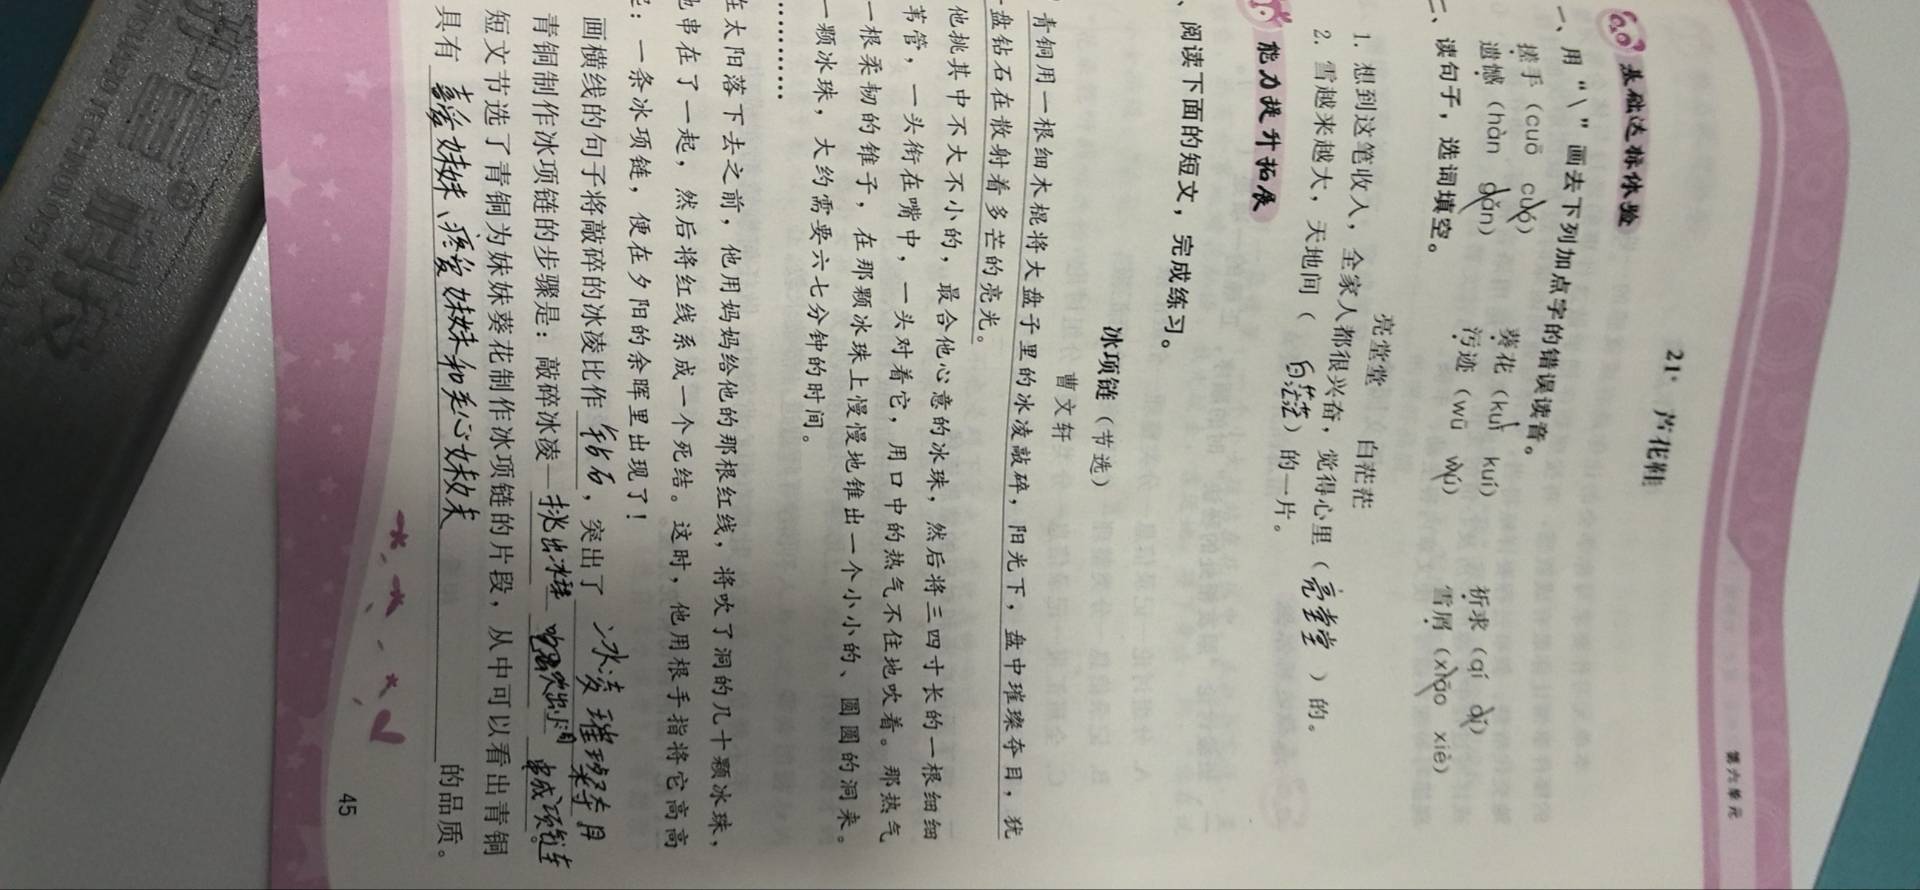 第六单元
21* 芦花鞋
基础达标体验
一、用“\”画去下列加点字的错误读音。
搓手（cuō cuó） 葵花（kuǐ kuí） 祈求（qí dǐ）
遗憾（hàn gǎn） 污迹（wū wú） 雪屑（xiāo xiè）
二、读句子，选词填空。
亮堂堂 白茫茫
1. 想到这笔收入，全家人都很兴奋，觉得心里（亮堂堂）的。
2. 雪越来越大，天地间（白茫茫）的一片。
能力提升拓展
、阅读下面的短文，完成练习。
冰项链（节选）
曹文轩
青铜用一根细木棍将大盘子里的冰凌敲碎，阳光下，盘中璀璨夺目，犹
盘钻石在散射着多芒的亮光。
他挑其中不大不小的，最合他心意的冰珠，然后将三四寸长的一根细细
苇管，一头衔在嘴中，一头对着它，用口中的热气不住地吹着。那热气
一根柔韧的锥子，在那颗冰珠上慢慢地锥出一个小小的、圆圆的洞来。
一颗冰珠，大约需要六七分钟的时间。
…………
在太阳落下去之前，他用妈妈给他的那根红线，将吹了洞的几十颗冰珠，
地串在了一起，然后将红线系成一个死结。这时，他用根手指将它高高
：一条冰项链，便在夕阳的余晖里出现了！
画横线的句子将敲碎的冰凌比作 钻石 ，突出了 冰凌璀璨夺目
青铜制作冰项链的步骤是：敲碎冰凌— 挑出冰珠 吹出小洞 串成项链 。
短文节选了青铜为妹妹葵花制作冰项链的片段，从中可以看出青铜
具有 喜爱妹妹、疼爱妹妹和关心妹妹 的品质。
45